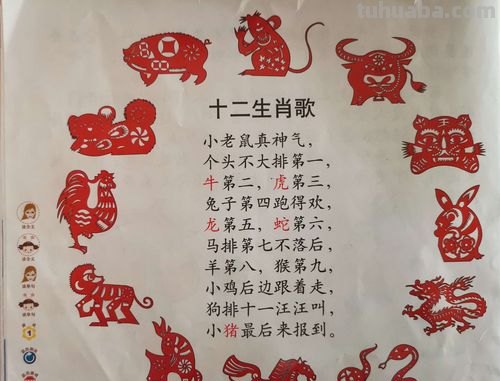 tuhuaba.com
十二生肖歌
小老鼠真神气，
个头不大排第一，
牛第二，虎第三，
兔子第四跑得欢，
龙第五，蛇第六，
马排第七不落后，
羊第八，猴第九，
小鸡后边跟着走，
狗排十一汪汪叫，
小猪最后来报到。